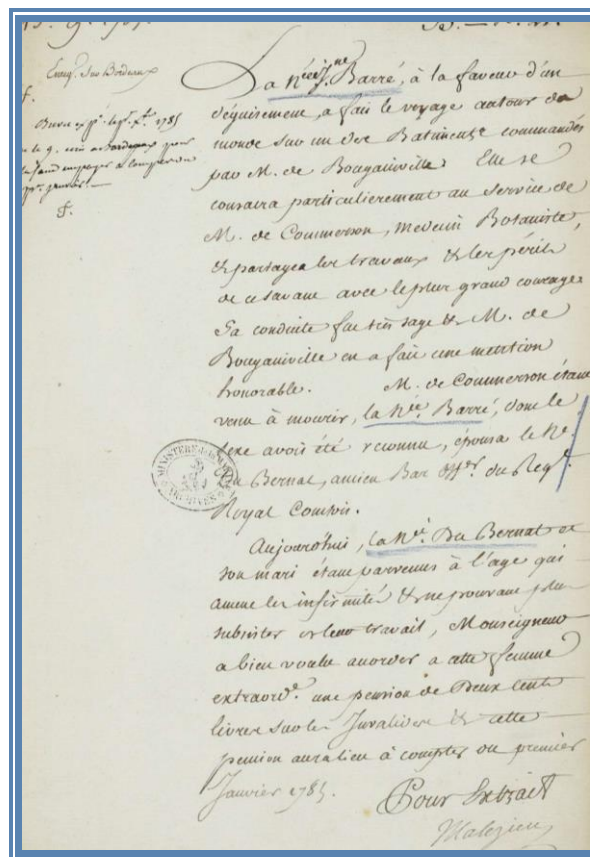 Enreg. Sur Bordeaux
La née Jne Barré, à la faveur d'un
déguisement, a fait le voyage autour du
monde sur un des Batiments commandés
par M. de Bougainville. Elle se
consacra particulierement au Service de
M. de Commerson, Medecin Botaniste,
& partagea les travaux & les périls
de ce savant avec le plus grand courage.
Sa conduite fut très sage & M. de
Bougainville en a fait une mention
honorable. M. de Commerson étant
venu à mourir, la née. Barré, dont le
sexe avoit été reconnu, épousa le Né.
Du Bernat, ancien Bas Offer. du Regt.
Royal Comtois.
Aujourd'hui, la Née. Du Bernat et
son mari étant parvenus à l'age qui
amene les infirmités & ne pouvant plus
subsister de leur travail, Monseigneur
a bien voulu accorder a cette femme
extraorde. une pension de Deux cents
livres sur les Invalides & cette
pension aura lieu à compter du premier
Janvier 1785.
Pour Extrait
Malezieu
MINISTERE DE LA MARINE
ARCHIVES